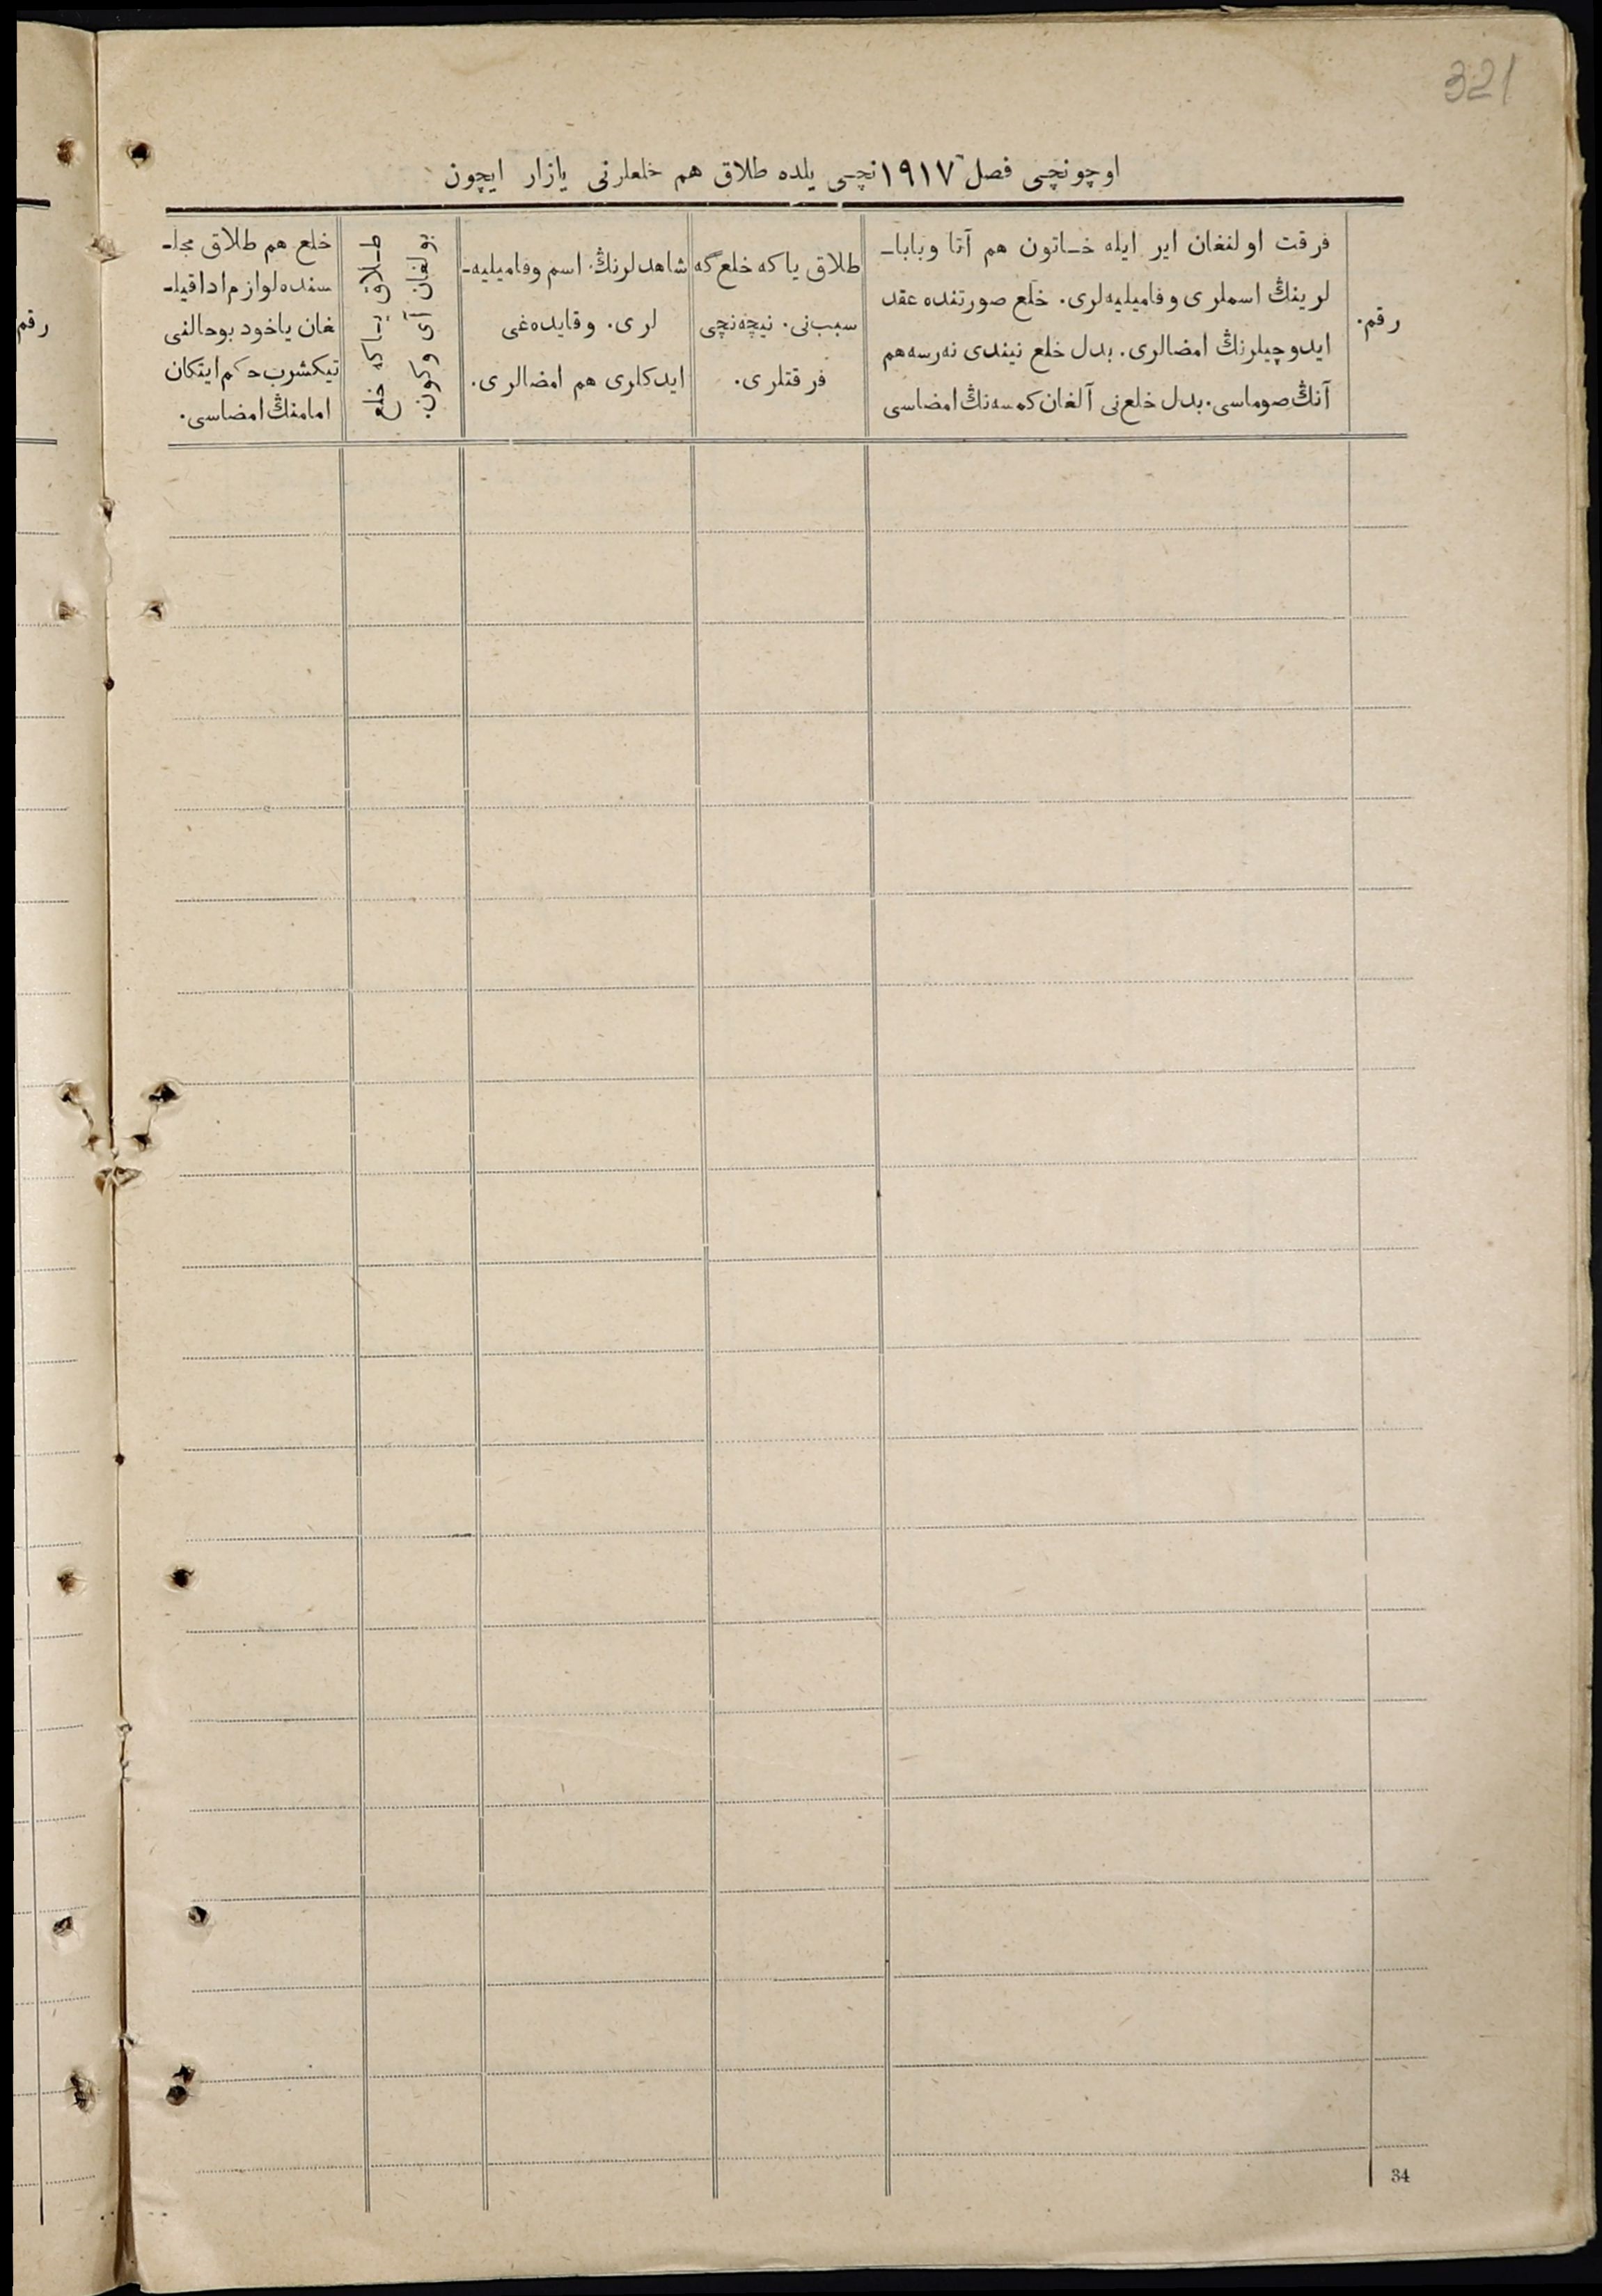 321
اوچونچی فصل ١٩١٧نچی یلده طلاق هم خلعلرنی یازار ایچون
رقم.
فرقت اولنغان ایر ایله خـاتون هم آتا وبابا۔
لرینڭ اسملری وفامیلیه‌لری. خلع صورتنده عقد
ایدوچیلرنڭ امضالری. بدل خلع نیندی نەرسەهم
آنڭ صوماسی. بدل خلع‌نی آلغان کمسەنڭ امضاسی
طلاق یاکه خلع‌گه
سبب‌نی. نیچەنچی
فرقتلری.
شاهدلرنڭ اسم وفامیلیه۔
لری. وقایده‌غی
ایدکلری هم امضالری.
طـلاق یـاکه خلع
بولغان آی وکون.
خلع هم طلاق مجلـ
سنده لوازم اداقیلـ
غان یاخود بوحالنی
تیکشرب حکم ایتکان
امامنڭ امضاسی.
رقم
34